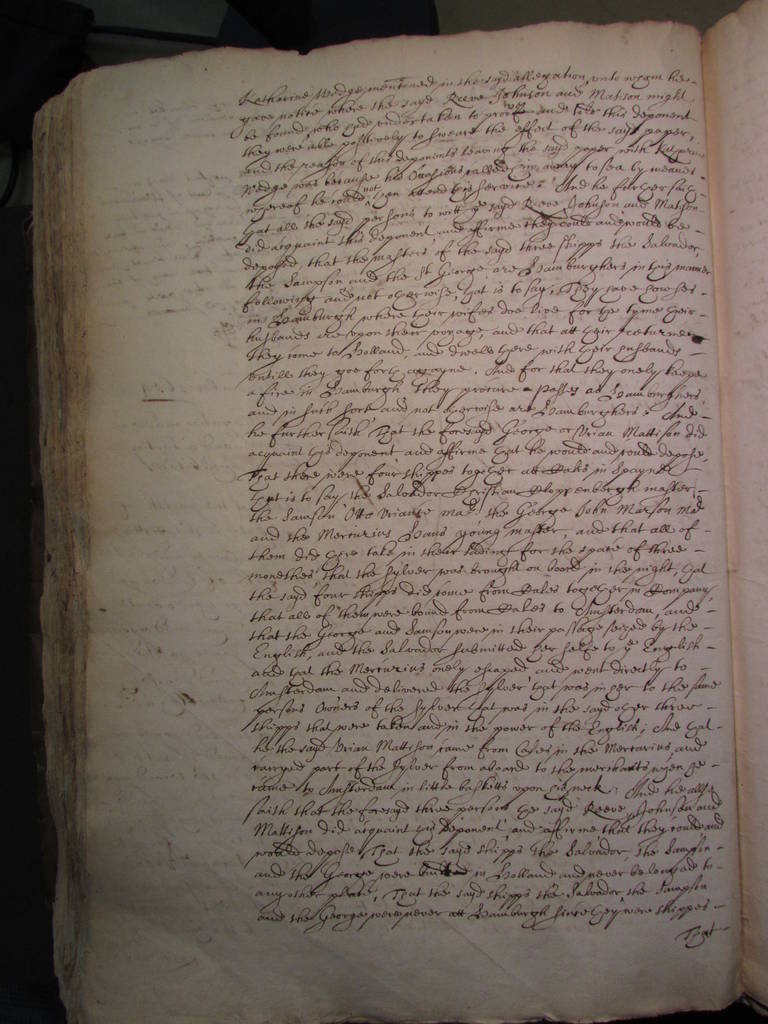 Katharine Wedge mentioned in the sayd allegation, unto whom hee
gave notice where the sayd Reeve Johnson and Matson might
be found, who had undertaken to prove and this deponent
they were able positively to sweare the effect of the sayd paper,
and the reason of this deponents leaving the said paper with Katherine
Wedge was because his occasions called him away to sea by meanes
whereof he could not then attend this service. And he further saith
that all the said persons to witt the sayd Reeve Johnson and Matson
did acquaint this deponent and affirme they could and would be
deposed that the masters of the sayd three shipps the Salvador,
the Sampson and the St George, are Hamburghers in this manner
following and not otherwise, that is to say, They have howses
in Hamburgh where their wifes doe live for the tyme their
husbands are upon their voyage, and that att their returne
they come to Holland, and dwell there with their husbands
untill they goe forth agayne. And for that they onely keepe
a fire in Hamburgh they procure Passes as Hamburghers,
and in such sort and not otherwise are Hamburghers. And
he further saith That the foresayd George or Urian Mattison did
acquaint this deponent and affirme that he would and could depose,
That there were four shippes together att Cales in Spayne
that is to say the Salvador Christian Cloppenburgh master,
the Samson Otto George mr. the George John Martson mr
and the Mercurius Hans young master, and that all of
them did there take in their lading for the space of three
monethes, that the sylver was brought on board in the night, that
the sayd four shipps did come from Cales together in Company,
that all of them were bound from Cales to Amsterdam, and
that the George and Samson were in their passage seized by the
English, and the Salvador submitted her selfe to ye English
and that the Mercurius onely escaped and went directly to
Amsterdam and delivered the sylver that was in her to the same
persons Owners of the sylver that was in the sayd other three
shipps that were taken and in the power of the English; And that
he the sayd Urian Mattison came from Cales in the Mercurius, and
carryed part of the sylver from aboard to the merchants when he
came to Amsterdam in little basketts upon his neck. And he also
saith that the foresayd three persons the sayd Reeve, Johnson and
Mattison did acquaint this deponent and affirme that they could and
would depose That the sayd shipps the Salvador, the Sampson
and the George were built in Holland and never belonged to
any other place, That the sayd shipps the Salvador the Sampson
and the George were never att Hamburgh since they were shippes
That